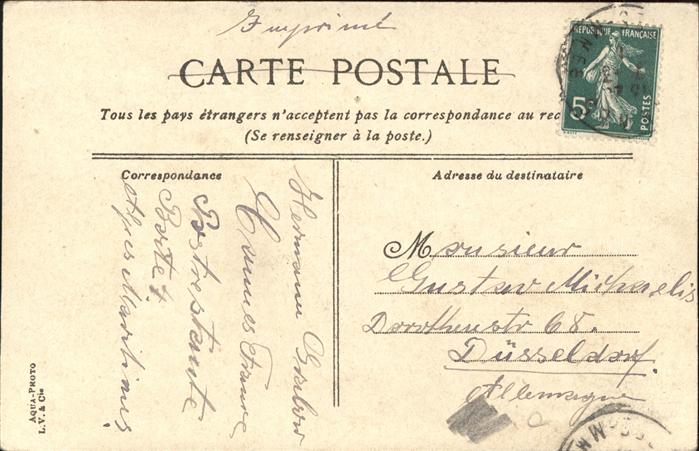 Imprimé
CARTE POSTALE
Tous les pays étrangers n'acceptent pas la correspondance au rec
(Se renseigner à la poste.)
REPUBLIQUE FRANÇAISE
5c
POSTES
Correspondance
Hermann
Cannes France
Postrestante
Alpes Maritimes
Adresse du destinataire
Monsieur
Gustav Michaelis
Dorothenstr 68.
Düsseldorf.
Allemagne
AQUA-PHOTO
L.V. & Cie